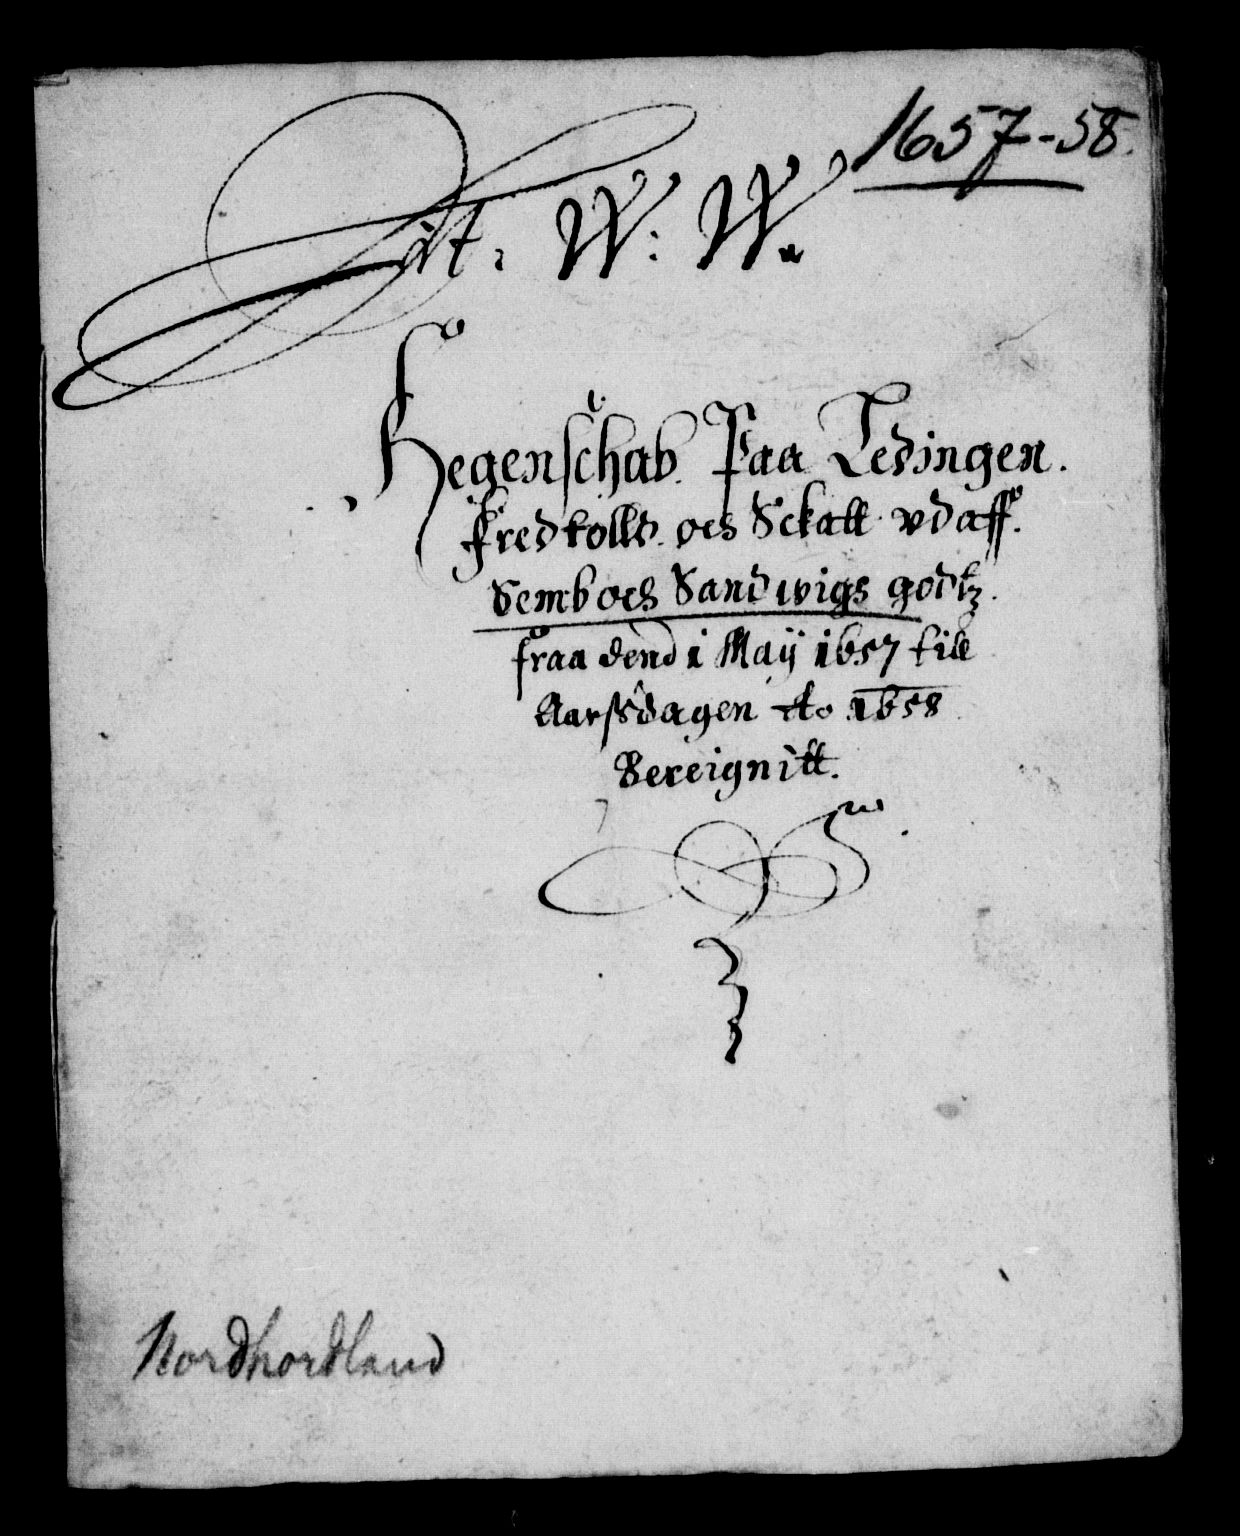 1657-58.
Lit. W: W.
Regenschab. Paa Ledingen.
Fredtolld. och Sckatt vdaff.
Semb och Sandwigs godtz.
fraa dend 1 Maÿ 1657 till
Aarßdagen Ao 1658
Bereignitt.
Nordhordland